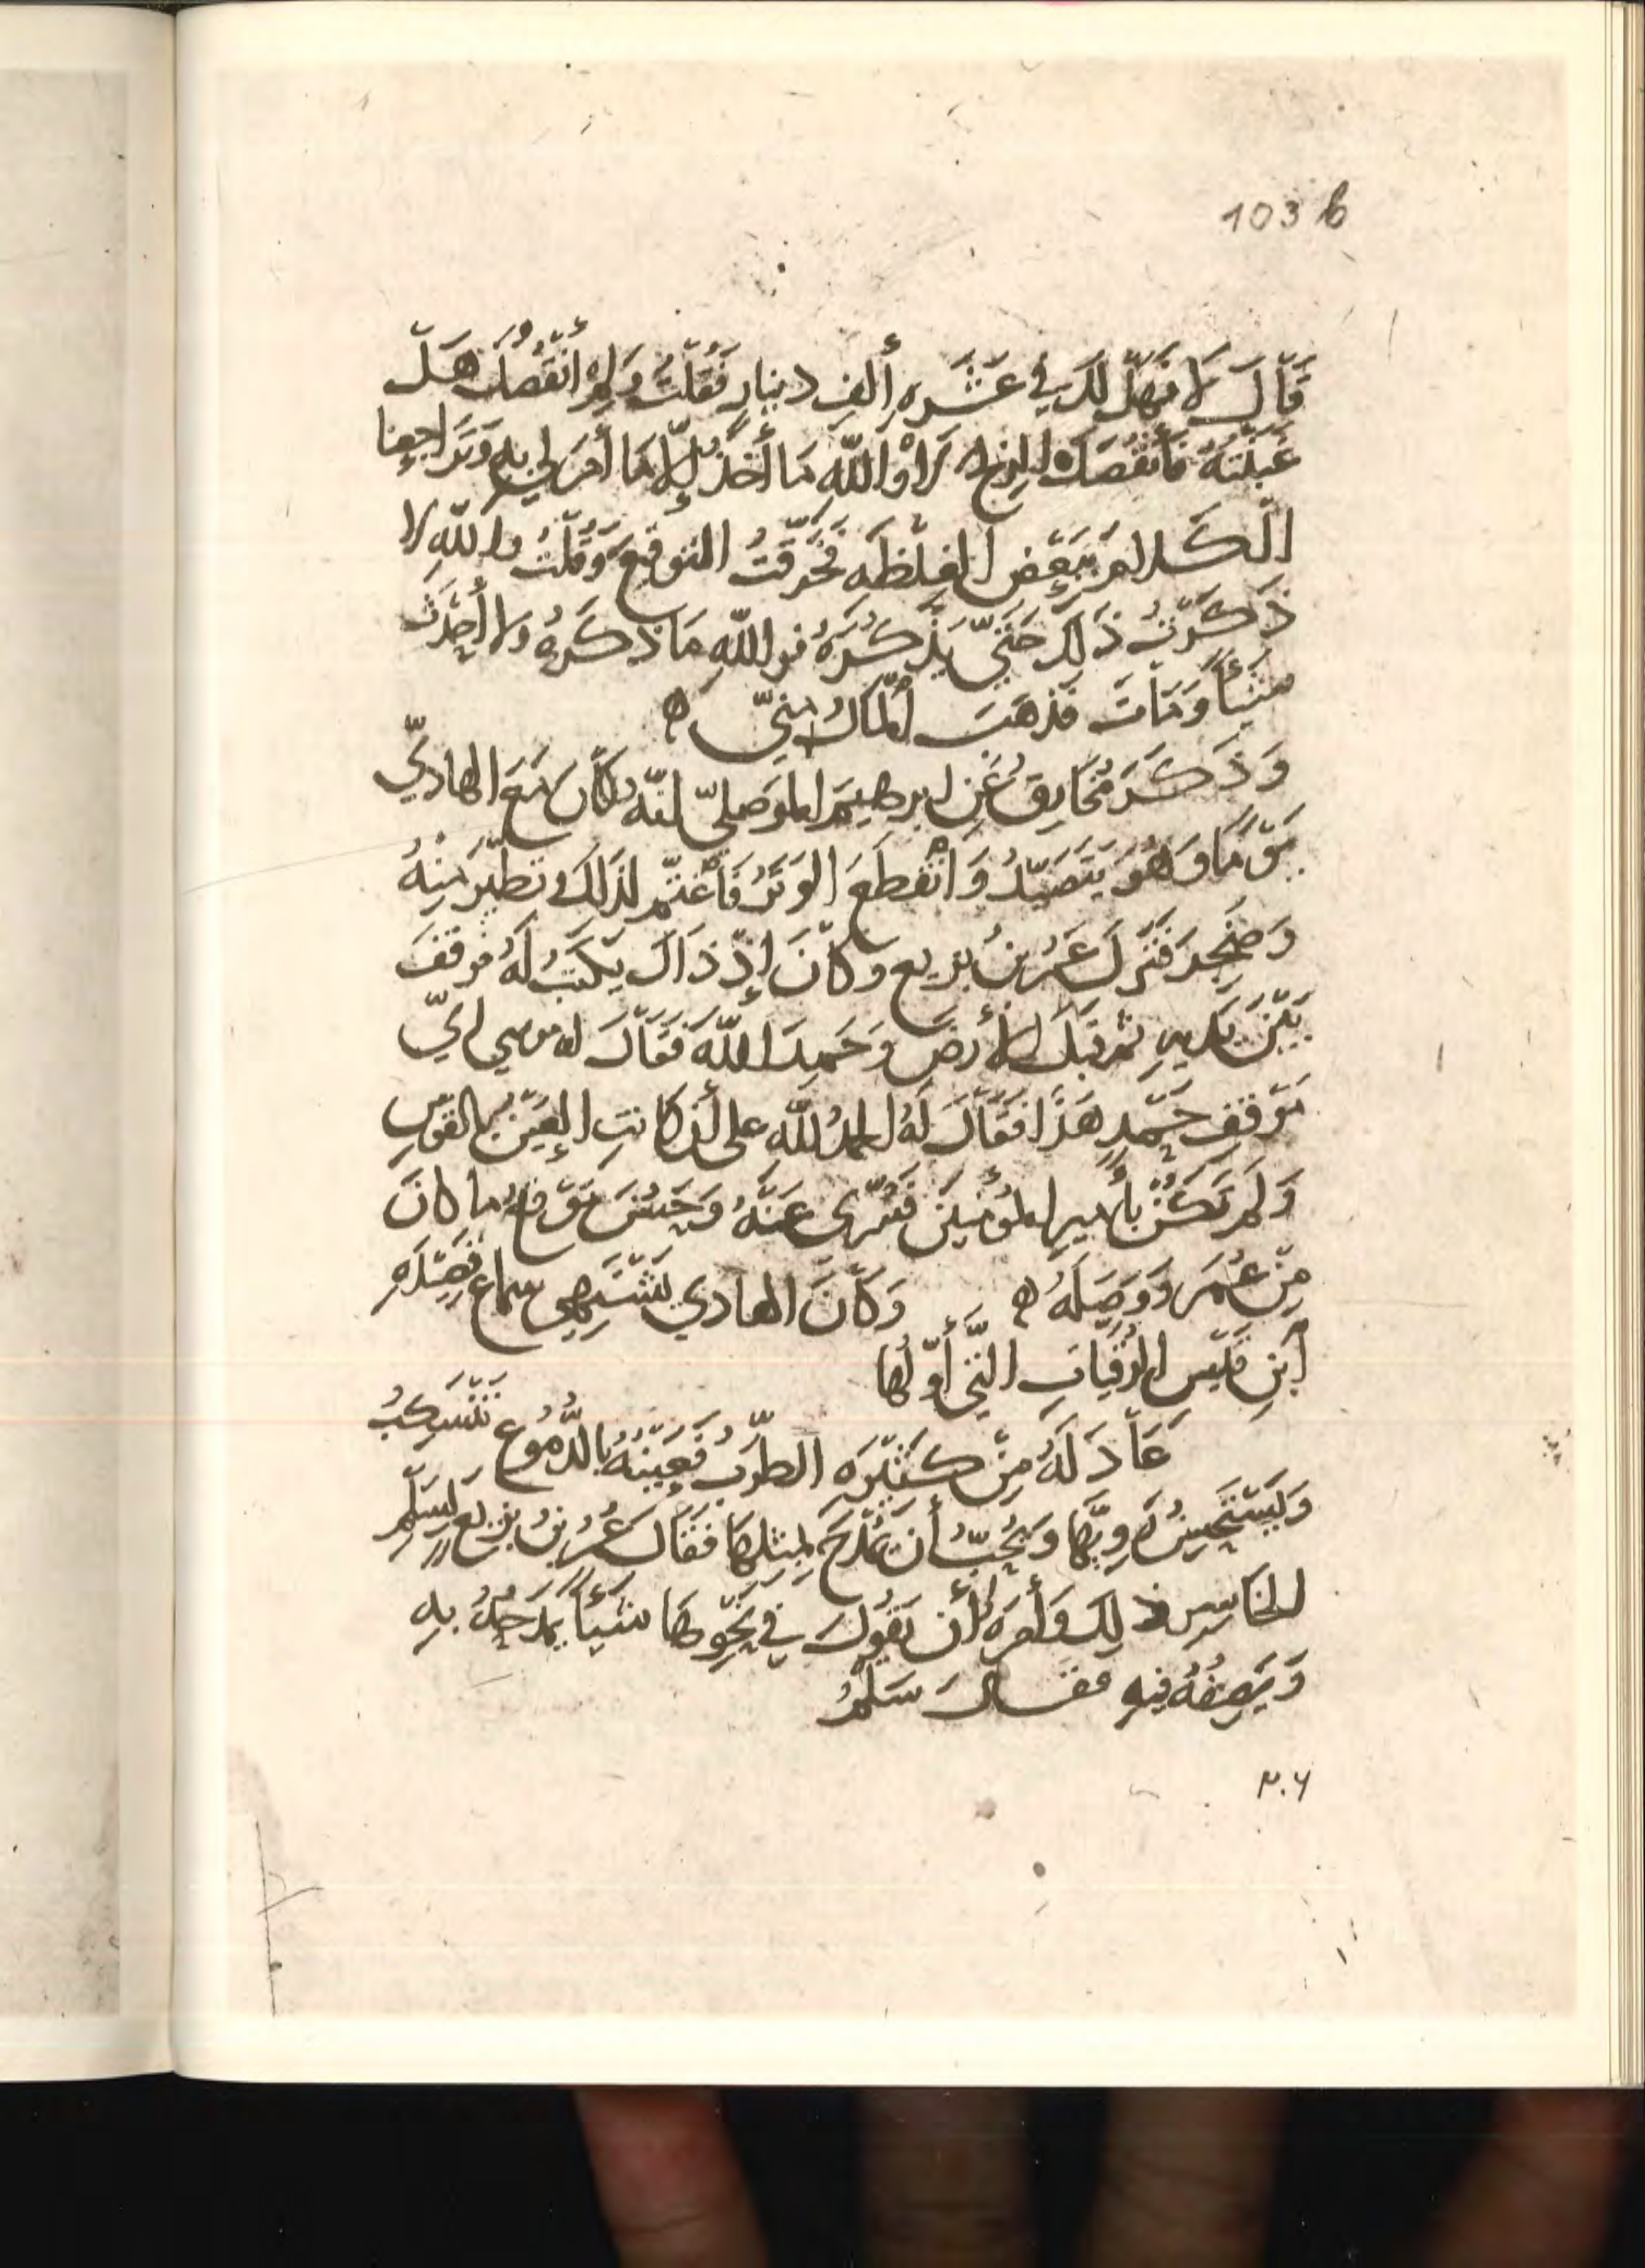 103 b
قَالَ لَا فَهَلْ لَكَ فِي عَشَرَةِ أَلفِ دِينَارٍ فَقُلْتُ وَلِمَ أَنْقُصُكَ هَلْ
غَبَنْتَهُ فَأَنْقُصَكَ لَا وَاللَّهِ مَا أَخَذَ إِلَّا مَا أَمَرَ لِي بِهِ وَتَرَاجَعْنَا
الْكَلَامَ بِبَعْضِ الْغِلْظَةِ فَخَرَقْتُ التَوقِيعَ وَقُلْتُ وَاللَّهِ لَا
ذَكَرْتُ ذَلِكَ حَتَّى يَذْكُرَهُ فَوَاللَّهِ مَا ذَكَرَهُ وَلَا أَخَذْتُ
شَيْئًا وَمَاتَ فَذَهَبَ الْمَالُ مِنِّي ه
وَذَكَرَ مُخَارِقُ عَنِ ابرهيمَ الموصلِيّ انَّهُ كَانَ مَعَ الهَادِي
يَوْمًا وَهُوَ يَتَصَيَّدُ وَانْقَطَعَ الوَتَرُ فَاغْتَمَّ لِذَلِكَ وَتَطَيَّرَ مِنْهُ
وَضَجِرَ فَنَزَلَ عُمَرُ بنُ بزيع وَكَانَ إِذْ ذَاكَ يَكْتُبُ لَهُ فَوَقَفَ
بَيْنَ يَدَيهِ ثُمَ قَبَّلَ الأَرضَ وَحَمِدَ اللَّهَ فَقَالَ لَه مُوسى ايّ
مَوْقِفِ حَمْدٍ هَذَا فَقَالَ لَهُ الحمدُ لله على أَنْ كَانَتِ الْعَيْنُ بِالقَوْسِ
وَلَمْ تَكُنْ بِأَمِيرِ المُؤْمِنِينَ فَسُرِّيَ عَنْهُ وَحَسُنَ مَوْقِعُ مَا كانَ
مِنْ عُمَرَ وَوَصَلَهُ ه وَكَانَ الهادِي يَشْتَهِي سَمَاعَ قَصِيْدَةِ
ابْنِ قَيْسِ الرُّقَيَّاتِ الَّتِي أَوَّلُهَا
عَادَ لَهُ مِنْ كَثِيْرَةَ الطَّرَبُ فَعَيْنُهُ بِالدُّمُوعِ تَنْسَكِبُ
وَيَسْتَحْسِنُ رَوِيَّهَا وَيُحِبُّ أَن يُمْدَحَ بِمِثْلِهَا فَقَالَ عُمَرُ بنُ بَزِيعٍ لِسَلْمٍ
الخَاسِرِ ذلِكَ وَأَمَرَهُ أَن يَقُولَ فِي نَحْوِهَا شَيْئًا يَمْدَحُهُ بِهِ
وَيَصِفُهُ فِيهِ فَقَالَ سَلْمٌ
٢٠٦